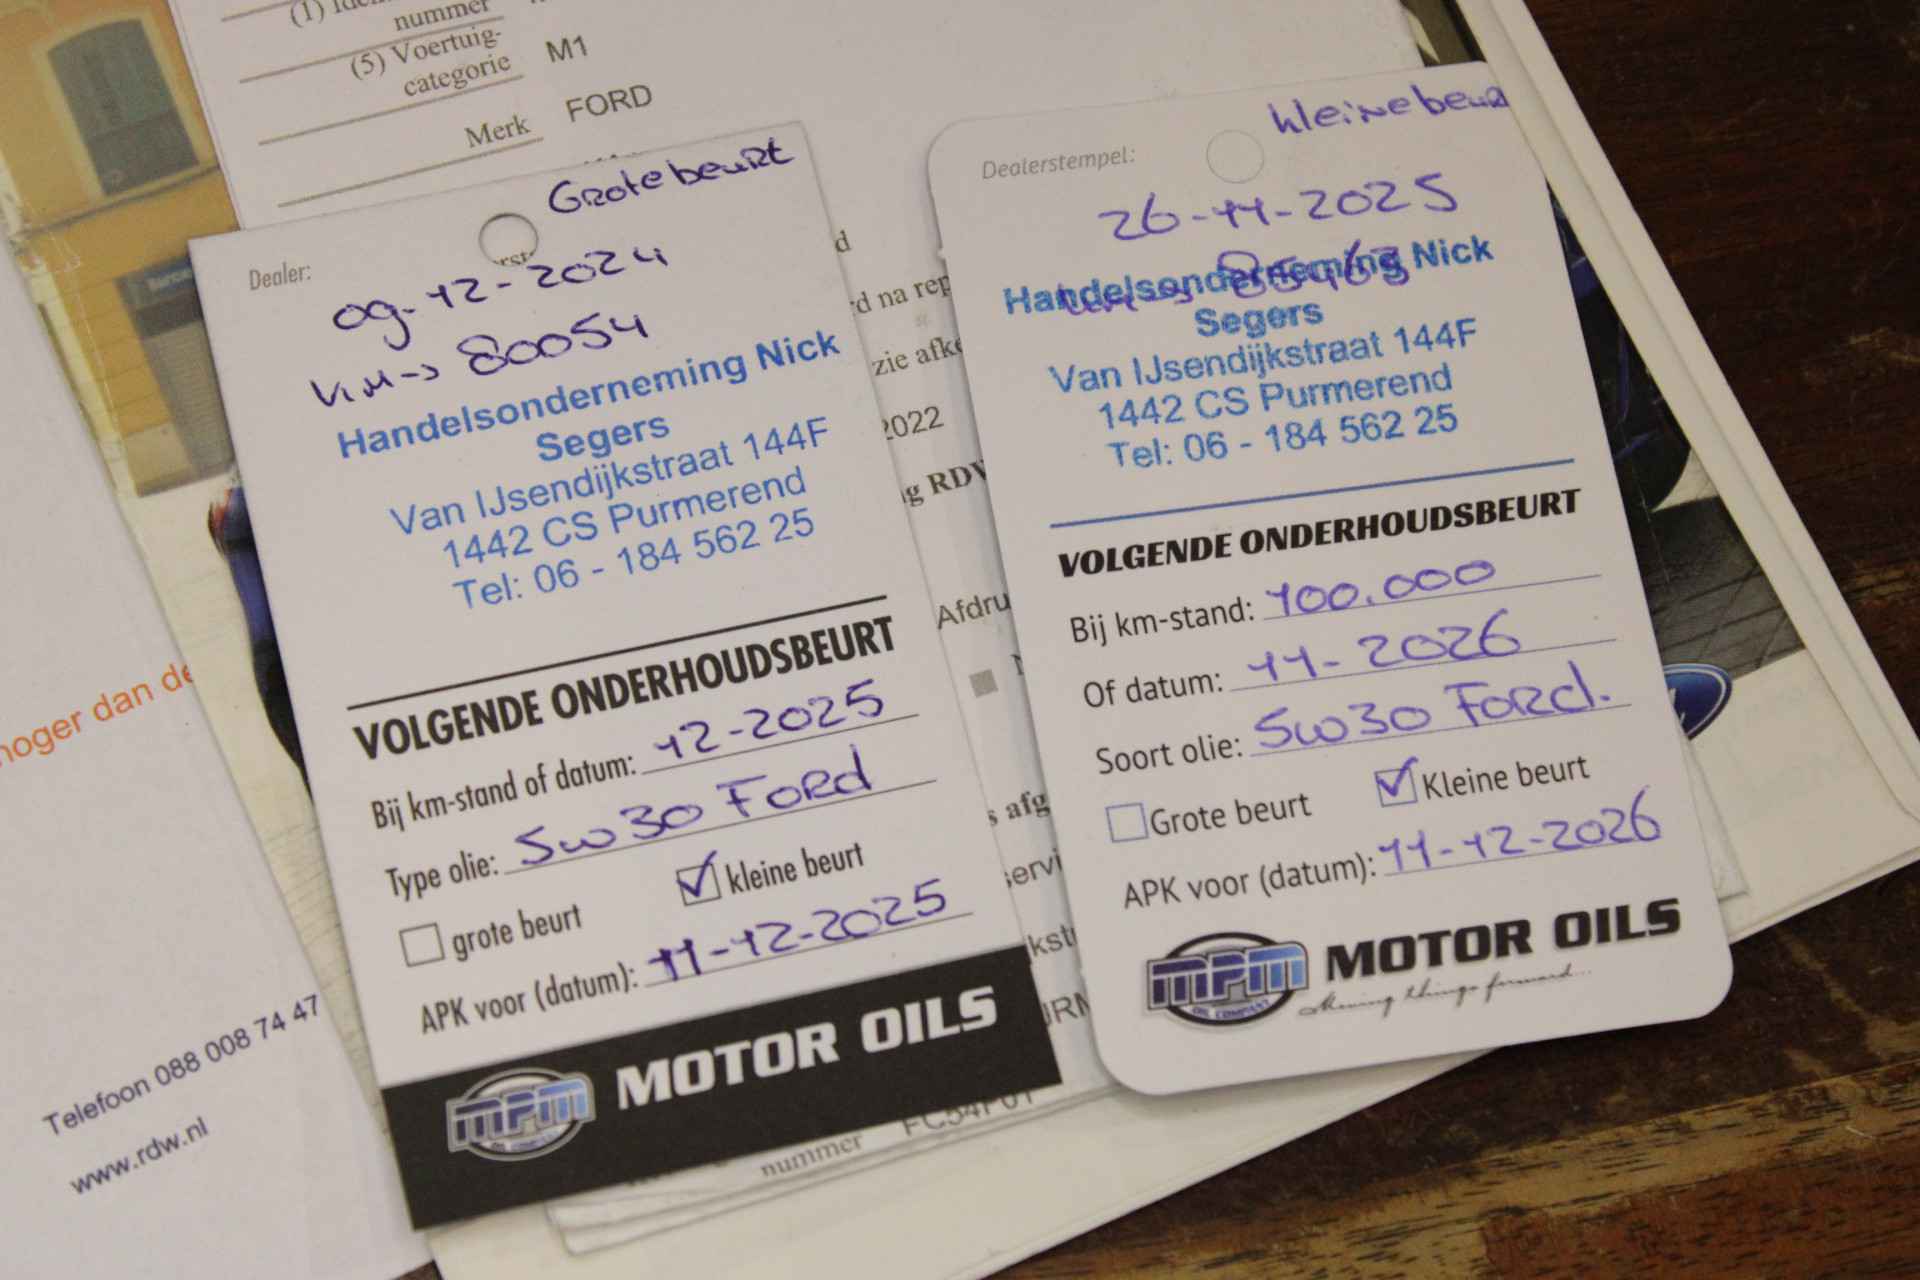 nummer
(5) Voertuig-
categorie M1
Merk FORD
Grote beurt
Dealer:
09-12-2024
KM-> 80054
Handelsonderneming Nick
Segers
Van IJsendijkstraat 144F
1442 CS Purmerend
Tel: 06 - 184 562 25
VOLGENDE ONDERHOUDSBEURT
Bij km-stand of datum: 12-2025
Type olie: 5w30 Ford
grote beurt kleine beurt
APK voor (datum): 11-12-2025
MPM OIL COMPANY MOTOR OILS
d
rd na rep
zie afke
2022
g RDW
Afdru
s afg
servi
kst
nummer FC54P01
kleine beur
Dealerstempel:
26-11-2025
Handelsonderneming Nick
Segers
Van IJsendijkstraat 144F
1442 CS Purmerend
Tel: 06 - 184 562 25
VOLGENDE ONDERHOUDSBEURT
Bij km-stand: 100.000
Of datum: 11-2026
Soort olie: 5w30 Ford.
Grote beurt Kleine beurt
APK voor (datum): 11-12-2026
MPM OIL COMPANY MOTOR OILS
Moving things forward...
hoger dan de
Telefoon 088 008 74 47
www.rdw.nl